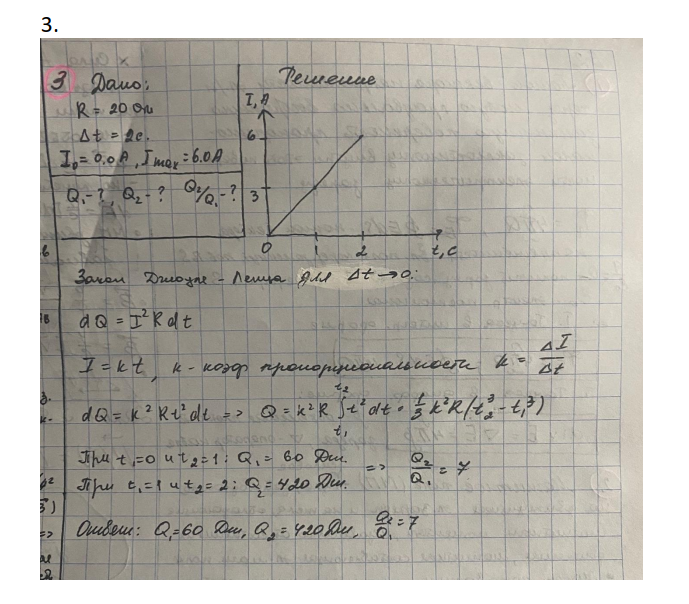 3.
3 Дано:
R = 20 Ом
Δt = 2c.
I₀ = 0.0 A, Imax = 6.0 A
Q₁ - ?, Q₂ - ? Q₂/Q₁ - ?
Решение
I, A
6
3
0 1 2 t, c
Закон Джоуля - Ленца для Δt → 0:
dQ = I² R dt
I = kt, k - коэф пропорциональности k = ΔI/Δt
dQ = k² R t² dt => Q = k² R ∫ t₁ t₂ t² dt = 1/3 k² R (t₂³ - t₁³)
При t₁=0 и t₂=1: Q₁ = 60 Дж.
При t₁=1 и t₂=2: Q₂ = 420 Дж.
=> Q₂/Q₁ = 7
Ответ: Q₁=60 Дж, Q₂ = 420 Дж, Q₂/Q₁ = 7